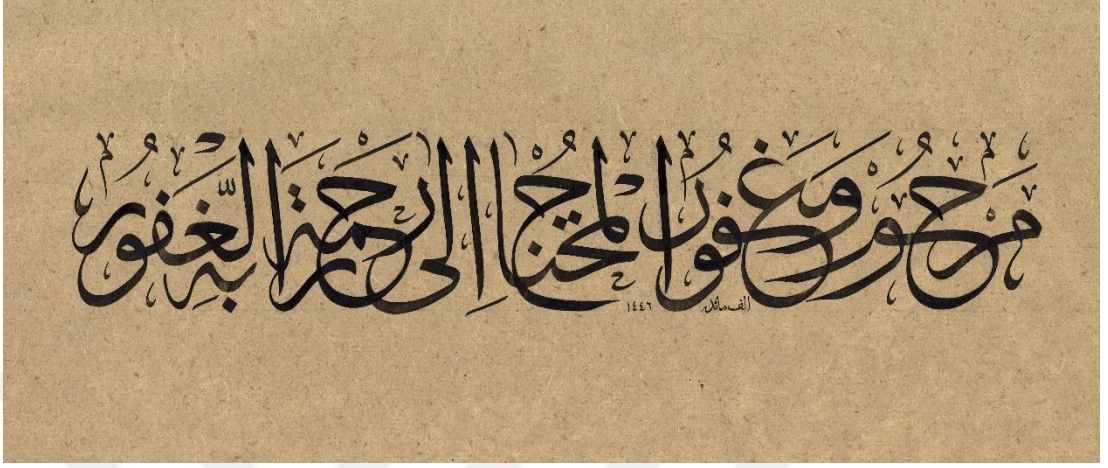 مرحوم ومغفور المحتاج الى رحمة ربه الغفور
١٤٤٦